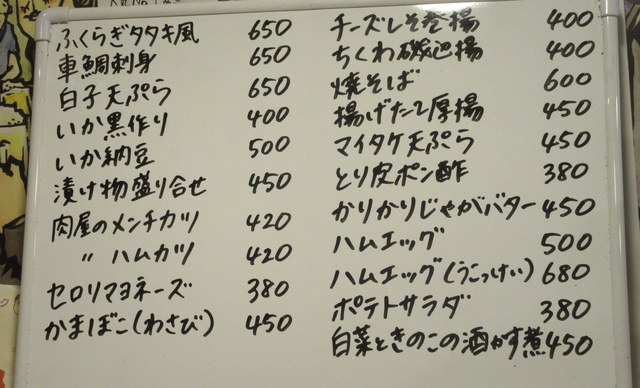 ふくらぎタタキ風 650
車鯛刺身 650
白子天ぷら 650
いか黒作り 400
いか納豆 500
漬け物盛り合せ 450
肉屋のメンチカツ 420
〃 ハムカツ 420
セロリマヨネーズ 380
かまぼこ(わさび) 450
チーズしそ巻揚 400
ちくわ磯辺揚 400
焼そば 600
揚げたて厚揚 450
マイタケ天ぷら 450
とり皮ポン酢 380
かりかりじゃがバター 450
ハムエッグ 500
ハムエッグ(うこっけい) 680
ポテトサラダ 380
白菜ときのこの酒かす煮 450